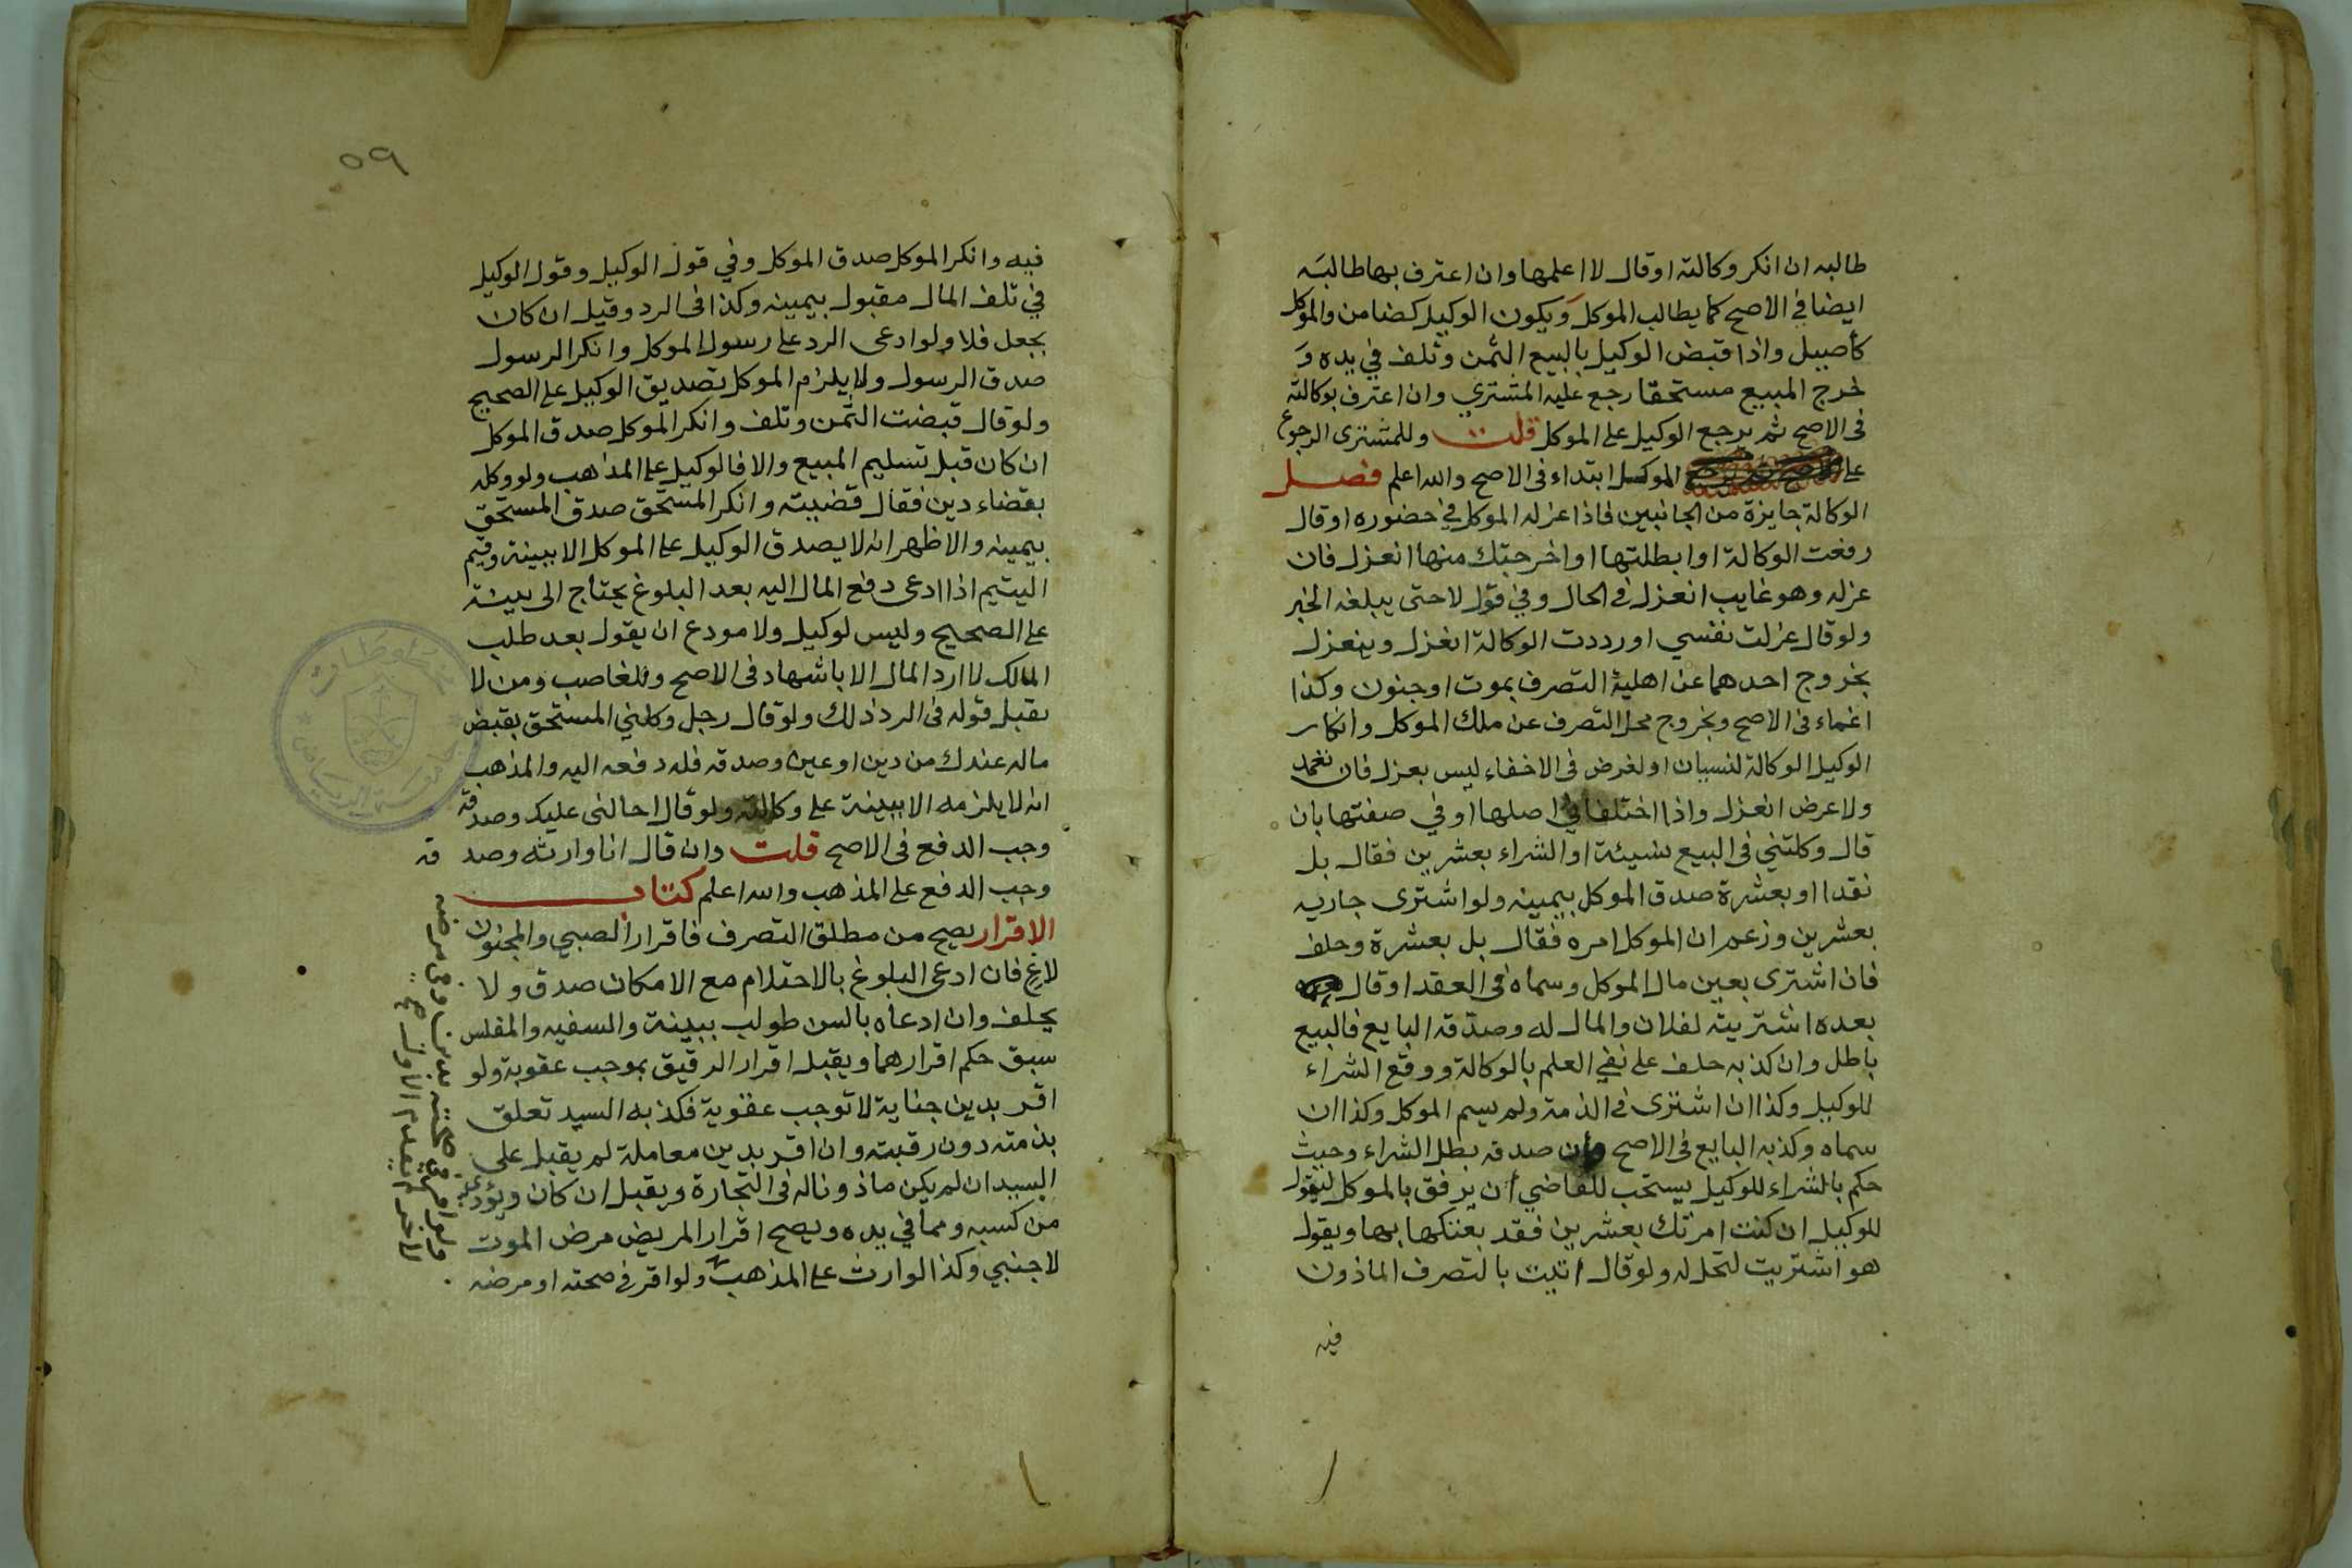 طالبه ان انكر وكالته او قال لا اعلمها وان اعترف بها طالبَه
ايضا في الاصح كما يطالب الموكل وَيكون الوكيل كضامن والموكل
كأصيل واذا قبض الوكيل بالبيع الثمن وتلف في يده وَ
خرج المبيع مستحقا رجع عليه المشتري وان اعترف بوكالته
فى الاصح ثم يرجع الوكيل على الموكل قلت وللمشترى الرجوع
على الموكل ابتداء فى الاصح والله اعلم فصل
الوكالة جايزة من الجانبين فاذا عزله الموكل في حضوره او قال
رفعت الوكالة او ابطلتها او اخرجتك منها انعزل فان
عزله وهو غايب انعزل فى الحال وفي قول لا حتى يبلغه الخبر
ولو قال عزلت نفسي او رددت الوكالة انعزل وينعزل
بخروج احدهما عن اهلية التصرف بموت او جنون وكذا
اغماء فى الاصح وبخروج محل التصرف عن ملك الموكل وانكار
الوكيل الوكالة لنسيان او لغرض فى الاخفاء ليس بعزل فان تعمد
ولا عرض انعزل واذا اختلفا في اصلها او في صفتها بان
قال وكلتني فى البيع نسيئة او الشراء بعشرين فقال بل
نقدا او بعشرة صدق الموكل بيمينه ولو اشترى جاريه
بعشرين وزعم ان الموكل امره فقال بل بعشرة وحلف
فان اشترى بعين مال الموكل وسماه فى العقد او قال
بعده اشتريته لفلان والمال له وصدقه البايع فالبيع
باطل وان كذبه حلف على نفي العلم بالوكالة ووقع الشراء
للوكيل وكذا ان اشترى فى الذمة ولم يسم الموكل وكذا ان
سماه وكذبه البايع فى الاصح وأن صدقه بطل الشراء وحيث
حكم بالشراء للوكيل يستحب للقاضي أن يرفق بالموكل ليقول
للوكيل ان كنت امرتك بعشرين فقد بعتكها بها ويقول
هو اشتريت لتحل له ولو قال اتيت بالتصرف الماذون
فيه
٥٩
فيه وانكر الموكل صدق الموكل وفي قول الوكيل وقول الوكيل
في تلف المال مقبول بيمينه وكذا فى الرد وقيل ان كان
بجعل فلا ولو ادعى الرد على رسول الموكل وانكر الرسول
صدق الرسول ولا يلزم الموكل تصديق الوكيل على الصحيح
ولو قال قبضت الثمن وتلف وانكر الموكل صدق الموكل
ان كان قبل تسليم المبيع والا فالوكيل على المذهب ولو وكله
بقضاء دين فقال قضيته وانكر المستحق صدق المستحق
بيمينه والاظهر انه لا يصدق الوكيل على الموكل الا ببينة وقيم
اليتيم اذا ادعى دفع المال اليه بعد البلوغ يحتاج الى بينة
على الصحيح وليس لوكيل ولا مودع ان يقول بعد طلب
المالك لا ارد المال الا باشهاد فى الاصح وللغاصب ومن لا
يقبل قوله فى الرد ذلك ولو قال رجل وكلني المستحق بقبض
ماله عندك من دين او عين وصدقه فله دفعه اليه والمذهب
انه لا يلزمه الا ببينة على وكالته ولو قال احالنى عليك وصدقه
وجب الدفع فى الاصح قلت وان قال انا وارثه وصد قه
وجب الدفع على المذهب والله اعلم كتاب
الاقرار يصح من مطلق التصرف فاقرار الصبي والمجنون
لاغ فان ادعى البلوغ بالاحتلام مع الامكان صدق ولا
يحلف وان ادعاه بالسن طولب ببينة والسفيه والمفلس
سبق حكم اقرارهما ويقبل اقرار الرقيق بموجب عقوبة ولو
اقر بدين جناية لا توجب عقوبة فكذبه السيد تعلق
بذمته دون رقبته وان اقر بدين معاملة لم يقبل على
السيد ان لم يكن ماذونا له فى التجارة ويقبل ان كان ويؤدي
من كسبه ومما في يده ويصح اقرار المريض مرض الموت
لاجنبي وكذا الوارث على المذهب ولو اقر فى صحته او مرضه
ولو اقر في صحته بدين وفى مرضه
لاخر لم يقدم الاول